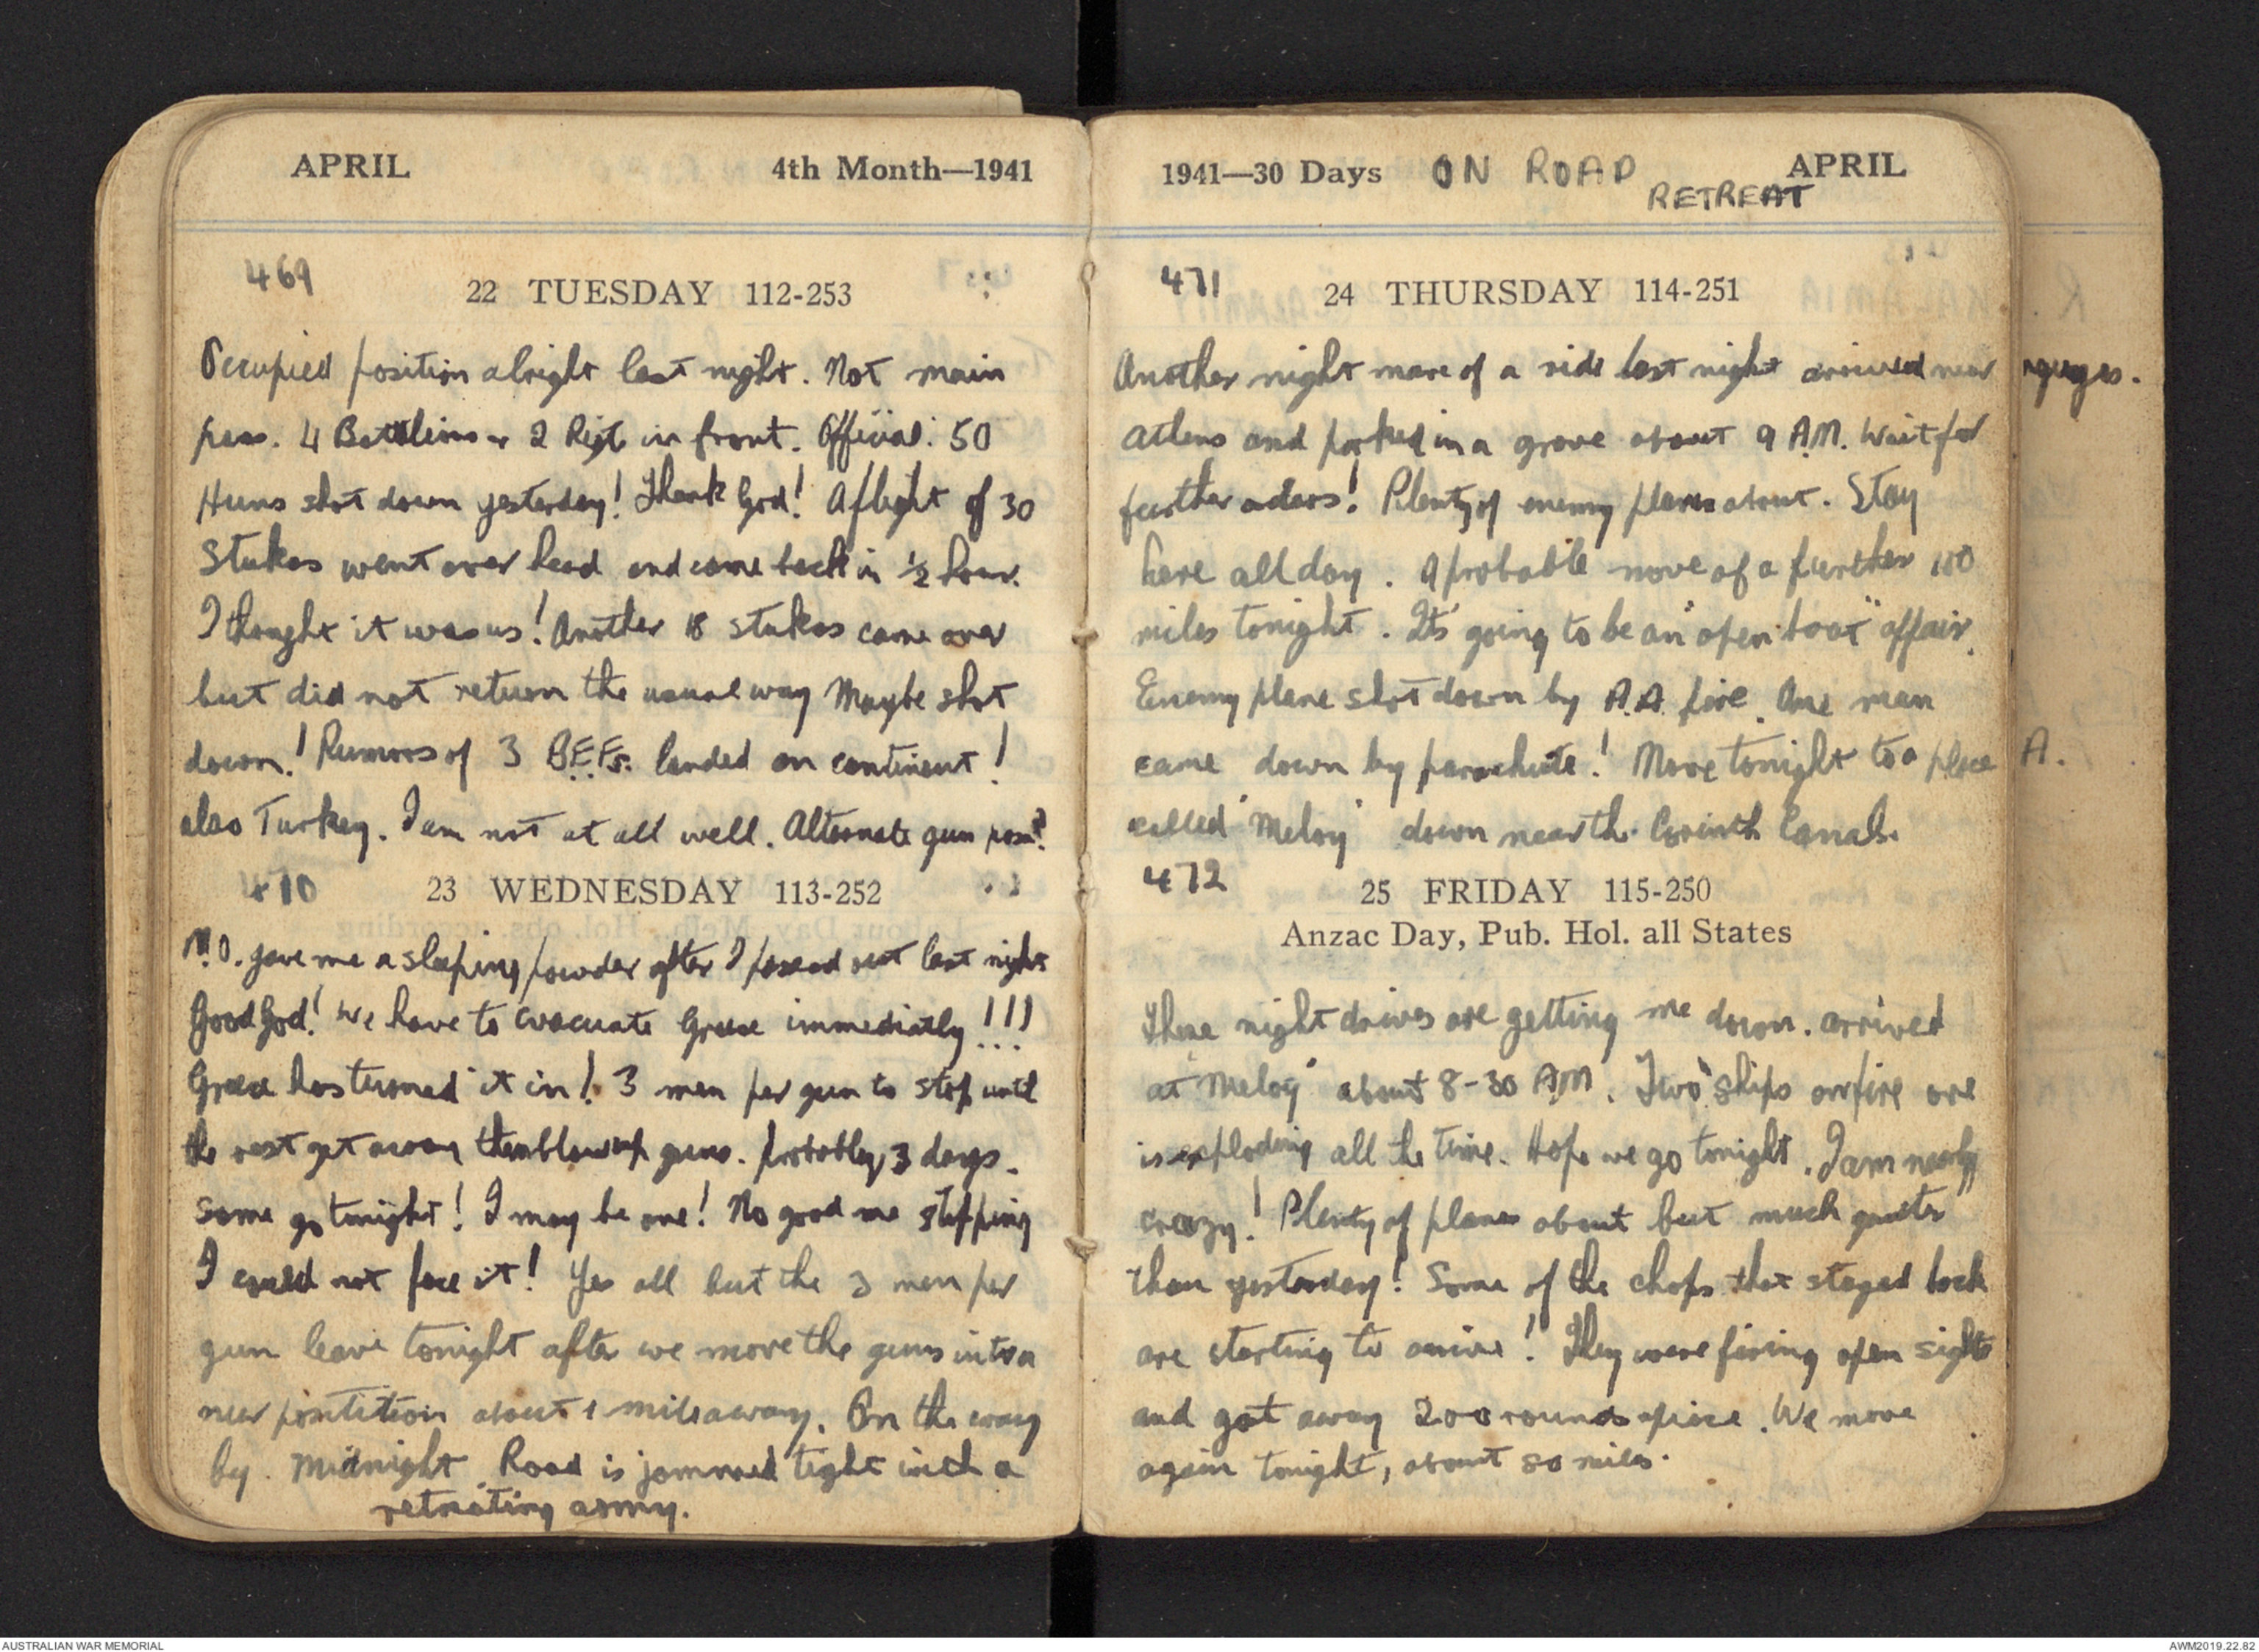 APRIL 4th Month—1941
469
22 TUESDAY 112-253
Occupied position alright last night. Not main
pass. 4 Battlions or 2 Rigts in front. Official: 50
Huns shot down yesterday! Thank God! A flight of 30
Stukas went over head and came back in ½ hour.
I thought it was us! Another 18 stukas came over
but did not return the usual way Maybe shot
down! Rumors of 3 B.E.Fs. landed on continent!
also Turkey. I am not at all well. Alternate gun posn?
470
23 WEDNESDAY 113-252
M.O. gave me a sleeping powder after I passed out last night
Good God! We have to evacuate Greece immediatly!!!
Greece has turned it in! 3 men per gun to stop until
the rest get away then blow up guns. probably 3 days.
Some go tonight! I may be one! No good me stopping
I could not face it! Yes all but the 3 men per
gun leave tonight after we move the guns into a
new postition about 1 mile away. On the way
by. Midnight. Road is jammed tight with a
retreating army.
1941—30 Days ON ROAD APRIL
RETREAT
471
24 THURSDAY 114-251
Another night mare of a ride last night arrived near
Athens and parked in a grove about 9 A.M. Wait for
further orders! Plenty of enemy planes about. Stay
here all day. A probable move of a further 100
miles tonight. Its going to be an "open boat" affair.
Enemy plane shot down by A.A. fire. One man
came down by parachute! Move tonight to a place
called "Meloy" down near the Corinth Canal.
472
25 FRIDAY 115-250
Anzac Day, Pub. Hol. all States
These night drives are getting me down. arrived
at "Meloy" about 8-30 A.M. Two ships on fire one
is exploding all the time. Hope we go tonight. I am nearly
crazy! Plenty of planes about but much quieter
than yesterday! Some of the chaps that stayed back
are starting to arrive! They were firing open sights
and got away 200 rounds apiece. We move
again tonight, about 80 miles.
A.
AUSTRALIAN WAR MEMORIAL
AWM2019.22.82